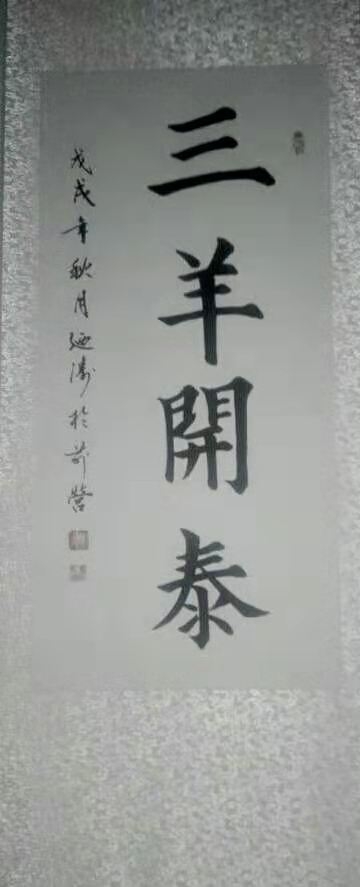 三羊開泰
戊戌年秋月延濤於前營